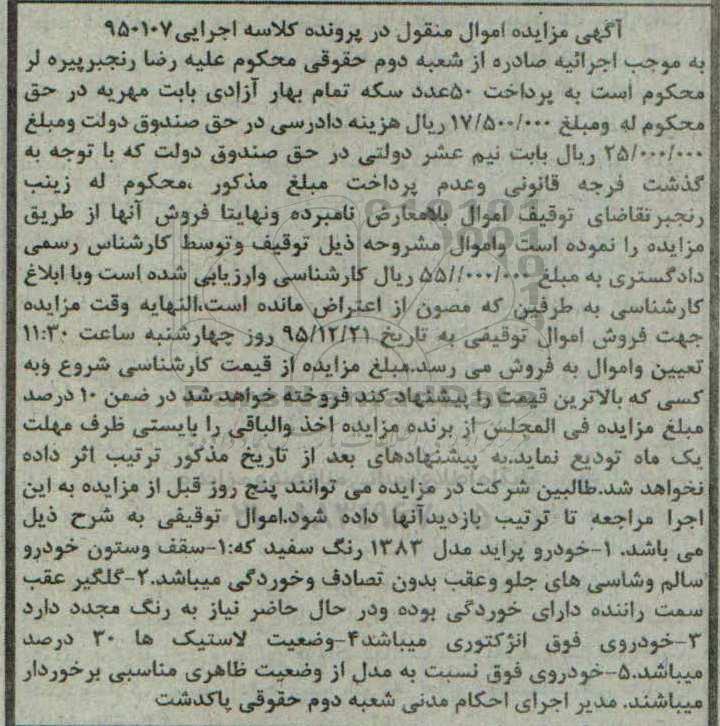 آگهی مزایده اموال منقول در پرونده کلاسه اجرایی۹۵۰۱۰۷
به موجب اجرائیه صادره از شعبه دوم حقوقی محکوم علیه رضا رنجبرپیره لر
محکوم است به پرداخت ۵۰عدد سکه تمام بهار آزادی بابت مهریه در حق
محکوم له ومبلغ ۱۷/۵۰۰/۰۰۰ ریال هزینه دادرسی در حق صندوق دولت ومبلغ
۲۵/۰۰۰/۰۰۰ ریال بابت نیم عشر دولتی در حق صندوق دولت که با توجه به
گذشت فرجه قانونی وعدم پرداخت مبلغ مذکور ،محکوم له زینب
رنجبرتقاضای توقیف اموال بلامعارض نامبرده ونهایتا فروش آنها از طریق
مزایده را نموده است واموال مشروحه ذیل توقیف وتوسط کارشناس رسمی
دادگستری به مبلغ ۵۵//۰۰۰/۰۰۰ ریال کارشناسی وارزیابی شده است وبا ابلاغ
کارشناسی به طرفین که مصون از اعتراض مانده است،النهایه وقت مزایده
جهت فروش اموال توقیفی به تاریخ ۹۵/۱۲/۲۱ روز چهارشنبه ساعت ۱۱:۳۰
تعیین واموال به فروش می رسد.مبلغ مزایده از قیمت کارشناسی شروع وبه
کسی که بالاترین قیمت را پیشنهاد کند فروخته خواهد شد در ضمن ۱۰ درصد
مبلغ مزایده فی المجلس از برنده مزایده اخذ والباقی را بایستی ظرف مهلت
یک ماه تودیع نماید.به پیشنهادهای بعد از تاریخ مذکور ترتیب اثر داده
نخواهد شد.طالبین شرکت در مزایده می توانند پنج روز قبل از مزایده به این
اجرا مراجعه تا ترتیب بازدیدآنها داده شود.اموال توقیفی به شرح ذیل
می باشد. ۱-خودرو پراید مدل ۱۳۸۳ رنگ سفید که:۱-سقف وستون خودرو
سالم وشاسی های جلو وعقب بدون تصادف وخوردگی میباشد.۲-گلگیر عقب
سمت راننده دارای خوردگی بوده ودر حال حاضر نیاز به رنگ مجدد دارد
۳-خودروی فوق انژکتوری میباشد۴-وضعیت لاستیک ها ۳۰ درصد
میباشد.۵-خودروی فوق نسبت به مدل از وضعیت ظاهری مناسبی برخوردار
میباشند. مدیر اجرای احکام مدنی شعبه دوم حقوقی پاکدشت